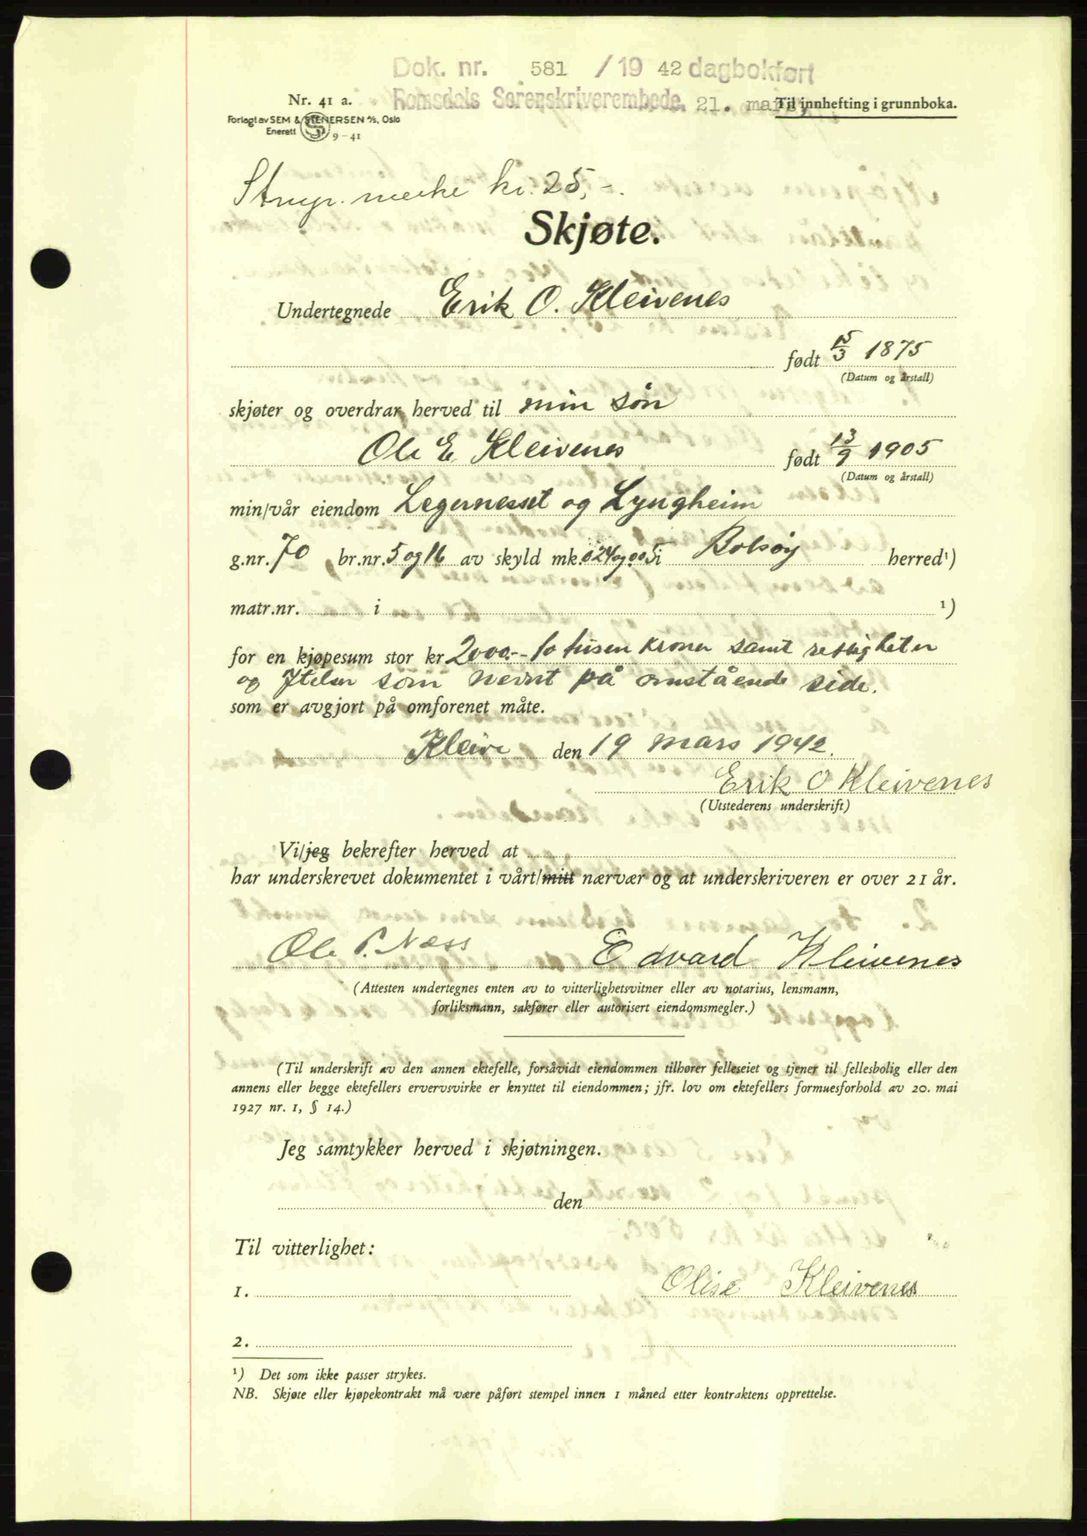 Dok. nr. 581 / 19 42 dagbokført
Romsdals Sorenskriverembede, 21. mai
Nr. 41 a.
Til innhefting i grunnboka.
Forlagt av SEM & STENERSEN A/S, Oslo
Enerett 9-41
merke kr. 25,-.
Skjøte.
Undertegnede Erik O. Kleivenes
født 15/3 1875
(Datum og årstall)
skjøter og overdrar herved til min søn
Ole E. Kleivenes født 13/9 1905
(Datum og årstall)
min/vår eiendom Legernesset og Lyngheim
g.nr. 70 br.nr. 5 og 16 av skyld mk. 0 24 og 0 05 i Bolsøy herred¹)
matr.nr. i ¹)
for en kjøpesum stor kr 2000.- to tusen kroner samt rettigheter
og Ytelser som nevnt på omstående side.
som er avgjort på omforenet måte.
Kleive den 19 mars 1942.
Erik O Kleivenes
(Utstederens underskrift)
Vi/jeg bekrefter herved at
har underskrevet dokumentet i vårt/mitt nærvær og at underskriveren er over 21 år.
Ole P. Næss Edvard Kleivenes
(Attesten undertegnes enten av to vitterlighetsvitner eller av notarius, lensmann,
forliksmann, sakfører eller autorisert eiendomsmegler.)
(Til underskrift av den annen ektefelle, forsåvidt eiendommen tilhører felleseiet og tjener til fellesbolig eller den
annens eller begge ektefellers ervervsvirke er knyttet til eiendommen; jfr. lov om ektefellers formuesforhold av 20. mai
1927 nr. 1, § 14.)
Jeg samtykker herved i skjøtningen.
den
Til vitterlighet:
1. Olise Kleivenes
2.
¹) Det som ikke passer strykes.
NB. Skjøte eller kjøpekontrakt må være påført stempel innen 1 måned etter kontraktens opprettelse.